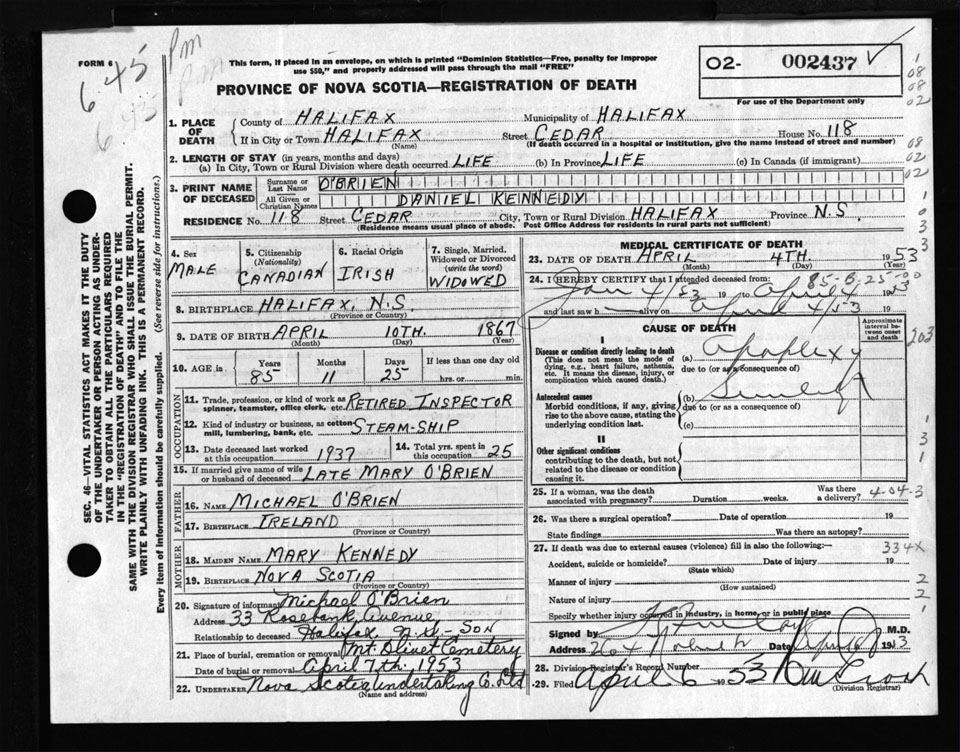 FORM 6
6.45 Pm
6.45 pm
This form, if placed in an envelope, on which is printed "Dominion Statistics—Free, penalty for improper
use $50," and properly addressed will pass through the mail "FREE"
PROVINCE OF NOVA SCOTIA—REGISTRATION OF DEATH
O2- 002437
For use of the Department only
1. PLACE OF DEATH County of HALIFAX Municipality of HALIFAX
If in City or Town HALIFAX Street CEDAR House No. 118
(Name) (If death occurred in a hospital or institution, give the name instead of street and number)
2. LENGTH OF STAY (in years, months and days)
(a) In City, Town or Rural Division where death occurred LIFE (b) In Province LIFE (c) In Canada (if immigrant)
3. PRINT NAME OF DECEASED Surname or Last Name O'BRIEN
All Given or Christian Names DANIEL KENNEDY
RESIDENCE No. 118 Street CEDAR City, Town or Rural Division HALIFAX Province N.S.
(Residence means usual place of abode. Post Office Address for residents in rural parts not sufficient)
4. Sex MALE
5. Citizenship (Nationality) CANADIAN
6. Racial Origin IRISH
7. Single, Married, Widowed or Divorced (write the word) WIDOWED
8. BIRTHPLACE HALIFAX, N.S
(Province or Country)
9. DATE OF BIRTH APRIL 10TH. 1867
(Month) (Day) (Year)
10. AGE in Years 85 Months 11 Days 25 If less than one day old hrs. or min.
OCCUPATION
11. Trade, profession, or kind of work as spinner, teamster, office clerk, etc. RETIRED INSPECTOR
12. Kind of industry or business, as cotton mill, lumbering, bank, etc. STEAM-SHIP
13. Date deceased last worked at this occupation 1937
14. Total yrs. spent in this occupation 25
15. If married give name of wife or husband of deceased LATE MARY O'BRIEN
FATHER
16. NAME MICHAEL O'BRIEN
17. BIRTHPLACE IRELAND
(Province or Country)
MOTHER
18. MAIDEN NAME MARY KENNEDY
19. BIRTHPLACE NOVA SCOTIA
(Province or Country)
20. Signature of informant Michael O'Brien
Address 33 Rosebank Avenue
Relationship to deceased Halifax N.S. - SON
21. Place of burial, cremation or removal Mt. Olivet Cemetery
Date of burial or removal April 7th. 1953
22. UNDERTAKER Nova Scotia Undertaking Co. Ltd
(Name and address)
MEDICAL CERTIFICATE OF DEATH
23. DATE OF DEATH APRIL 4TH. 1953
(Month) (Day) (Year)
24. I HEREBY CERTIFY that I attended deceased from: 85-B-25-00
Jan 4/53 19 to April 4 1953
and last saw h alive on April 4/53 19
CAUSE OF DEATH
Approximate interval between onset and death
I
Disease or condition directly leading to death
(This does not mean the mode of dying, e.g., heart failure, asthenia, etc. It means the disease, injury, or complication which caused death.)
(a) Apoplexy
due to (or as a consequence of)
Antecedent causes
Morbid conditions, if any, giving rise to the above cause, stating the underlying condition last.
(b) Senility
due to (or as a consequence of)
(c)
II
Other significant conditions
contributing to the death, but not related to the disease or condition causing it.
25. If a woman, was the death associated with pregnancy? Duration weeks. Was there a delivery? 4-04-3
26. Was there a surgical operation? Date of operation 19
State findings Was there an autopsy?
27. If death was due to external causes (violence) fill in also the following:— 334X
Accident, suicide or homicide? Date of injury 19
(State which)
Manner of injury
(How sustained)
Nature of injury
Specify whether injury occurred in industry, in home, or in public place
Signed by M.D.
Address Date 1953
28. Division Registrar's Record Number
29. Filed April 6 1953
(Division Registrar)
SEC. 46—VITAL STATISTICS ACT MAKES IT THE DUTY
OF THE UNDERTAKER OR PERSON ACTING AS UNDER-
TAKER TO OBTAIN ALL THE PARTICULARS REQUIRED
IN THE "REGISTRATION OF DEATH" AND TO FILE THE
SAME WITH THE DIVISION REGISTRAR WHO SHALL ISSUE THE BURIAL PERMIT.
WRITE PLAINLY WITH UNFADING INK. THIS IS A PERMANENT RECORD.
Every item of information should be carefully supplied. (See reverse side for instructions.)
1
08
08
02
08
02
02
1
0
3
3
903
1
3
1
2
2
1